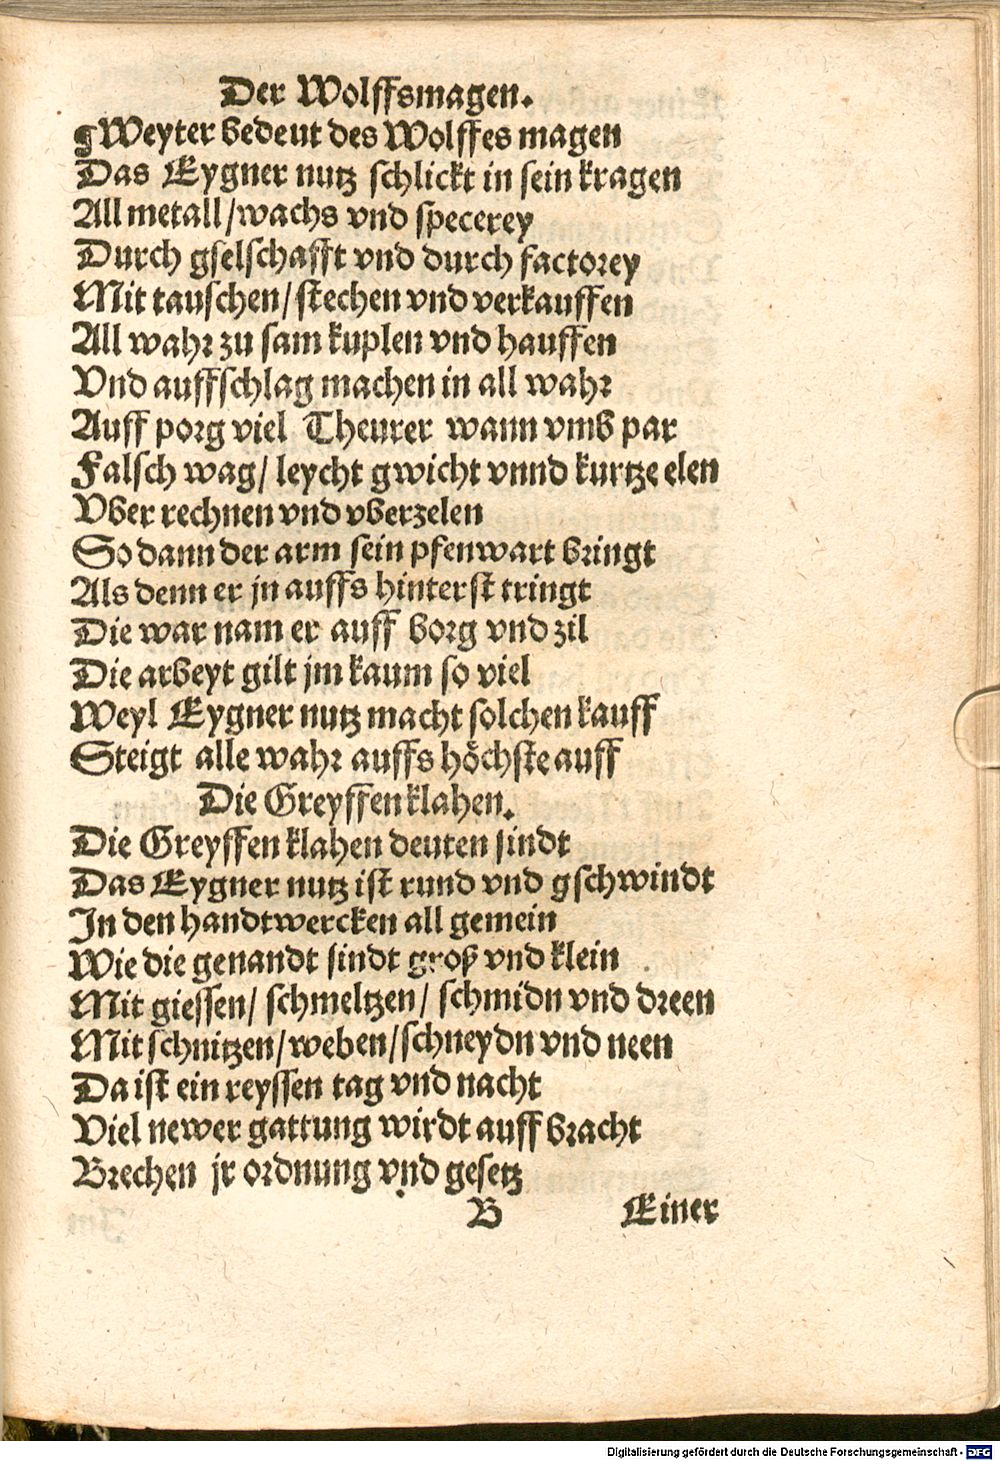 Der Wolffsmagen.
¶Weyter bedeut des Wolffes magen
Das Eygner nutz schlickt in sein kragen
All metall/wachs vnd specerey
Durch gselschafft vnd durch factorey
Mit tauschen/stechen vnd verkauffen
All wahr zu sam kuplen vnd hauffen
Vnd auffschlag machen in all wahr
Auff porg viel Theurer wann vmb par
Falsch wag/leycht gwicht vnnd kurtze elen
Vber rechnen vnd vberzelen
So dann der arm sein pfenwart bringt
Als denn er jn auffs hinterst tringt
Die war nam er auff borg vnd zil
Die arbeyt gilt jm kaum so viel
Weyl Eygner nutz macht solchen kauff
Steigt alle wahr auffs höchste auff
Die Greyffen klahen.
Die Greyffen klahen deuten sindt
Das Eygner nutz ist rund vnd gschwindt
In den handtwercken all gemein
Wie die genandt sindt groß vnd klein
Mit giessen/schmeltzen/schmidn vnd dreen
Mit schnitzen/weben/schneydn vnd neen
Da ist ein reyssen tag vnd nacht
Viel newer gattung wirdt auff bracht
Brechen jr ordnung vnd gesetz
B Einer
Digitalisierung gefördert durch die Deutsche Forschungsgemeinschaft - DFG